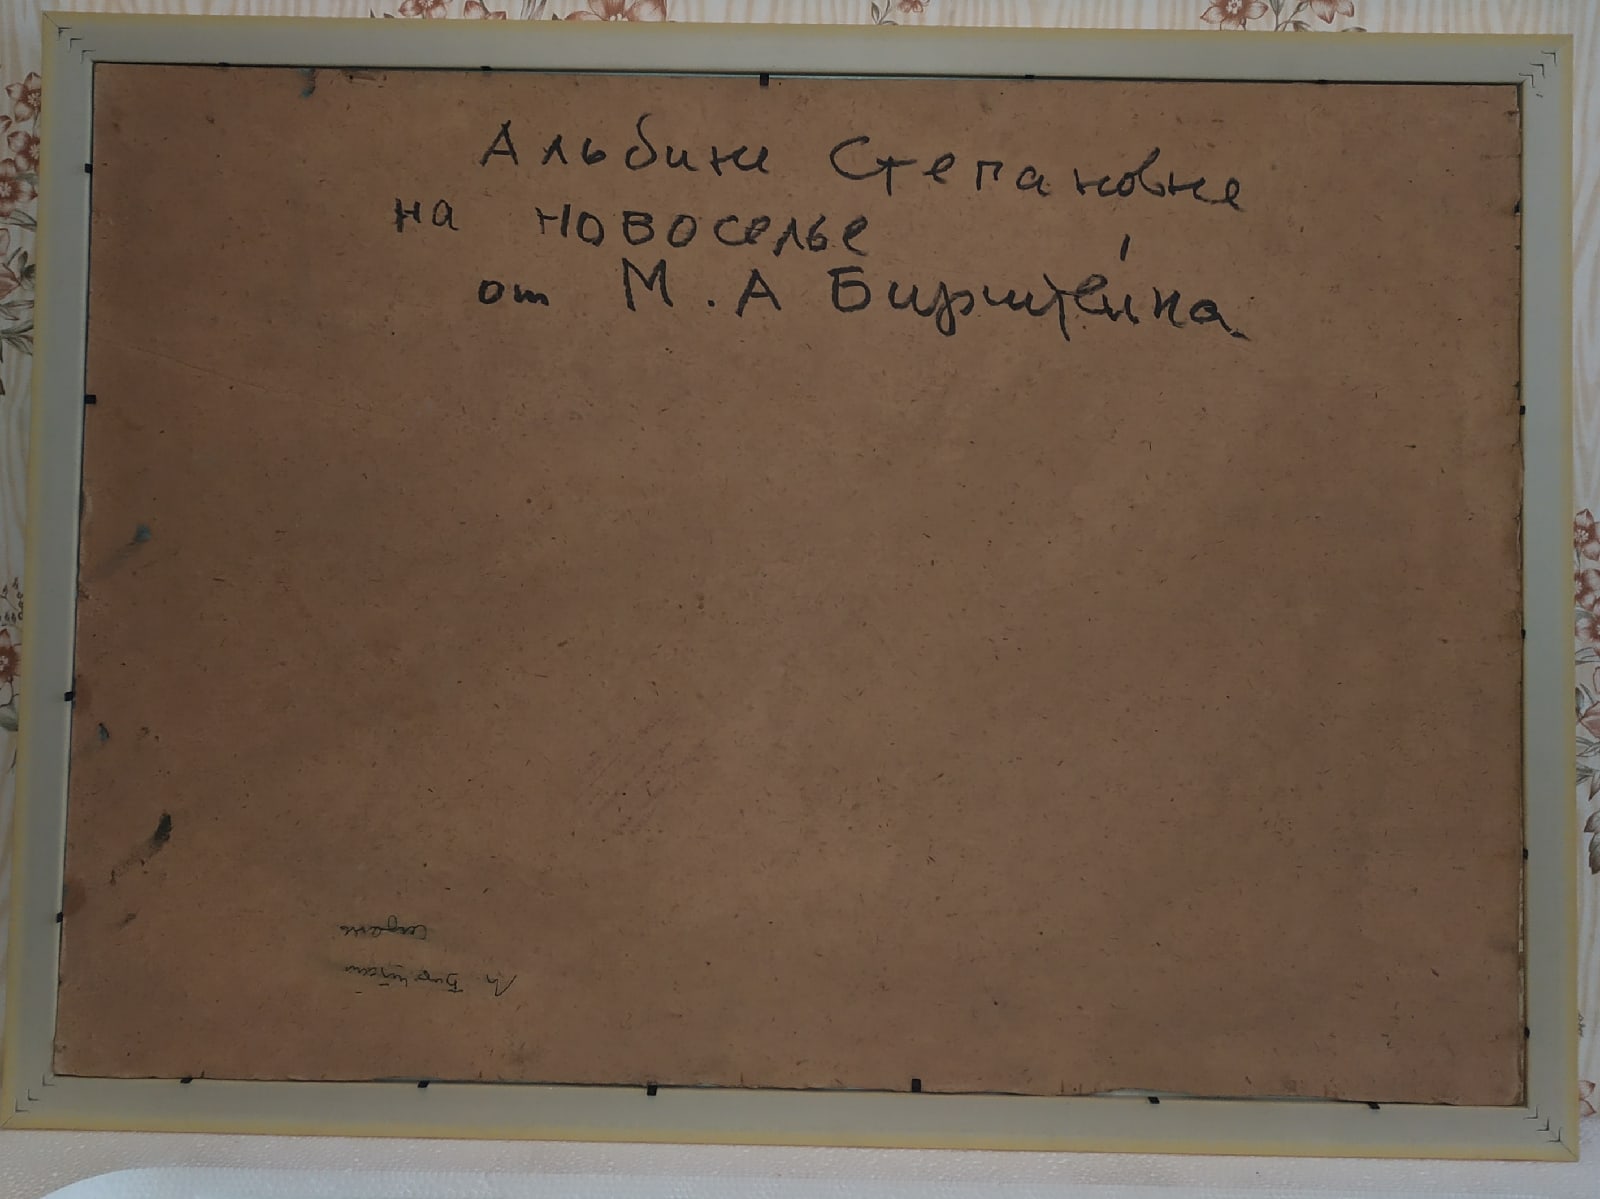 Альбине Степановне
на новоселье
от М.А Бирштейна
М. Бирштейн